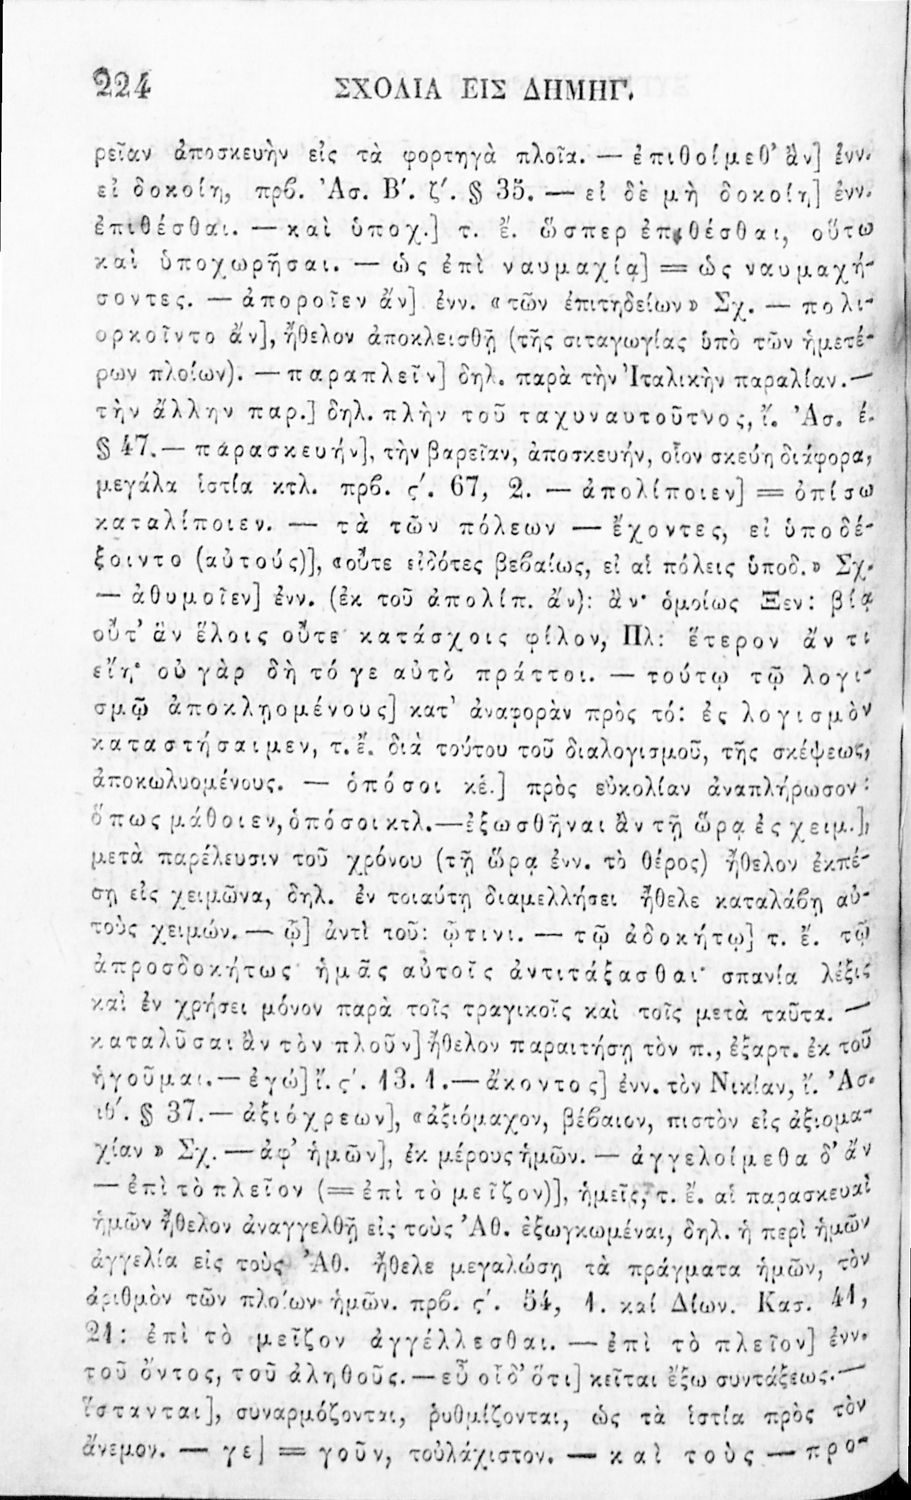 224 ΣΧΟΛΙΑ ΕΙΣ ΔΗΜΗΓ.
ρεῖαν ἀποσκευὴν εἰς τὰ φορτηγὰ πλοῖα. — ἐπιθοίμεθ’ ἂν] ἐνν.
εἰ δοκοίη, πρβ. Ἀσ. Β΄. ζ΄. § 35. — εἰ δὲ μὴ δοκοίη] ἐνν.
ἐπιθέσθαι. — καὶ ὑποχ.] τ. ἔ. ὥσπερ ἐπιθέσθαι, οὕτω
καὶ ὑποχωρῆσαι. — ὡς ἐπὶ ναυμαχίᾳ] = ὡς ναυμαχή-
σοντες. — ἀποροῖεν ἄν] ἐνν. «τῶν ἐπιτηδείων» Σχ. — πολι-
ορκοῖντο ἄν], ἤθελον ἀποκλεισθῇ (τῆς σιταγωγίας ὑπὸ τῶν ἡμετέ-
ρων πλοίων). — παραπλεῖν] δηλ. παρὰ τὴν Ἰταλικὴν παραλίαν. —
τὴν ἄλλην παρ.] δηλ. πλὴν τοῦ ταχυναυτοῦτνος, ἴ. Ἀσ. έ.
§ 47. — παρασκευήν], τὴν βαρεῖαν, ἀποσκευήν, οἷον σκεύη διάφορα,
μεγάλα ἱστία κτλ. πρβ. ς΄. 67, 2. — ἀπολίποιεν] = ὀπίσω
καταλίποιεν. — τὰ τῶν πόλεων — ἔχοντες, εἰ ὑποδέ-
ξοιντο (αὐτούς)], «οὔτε εἰδότες βεβαίως, εἰ αἱ πόλεις ὑποδ.» Σχ.
— ἀθυμοῖεν] ἐνν. (ἐκ τοῦ ἀπολίπ. ἄν): ἂν· ὁμοίως Ξεν: βίᾳ
οὔτ’ ἂν ἕλοις οὔτε κατάσχοις φίλον, Πλ: ἕτερον ἄν τι
εἴη· οὐ γὰρ δὴ τό γε αὐτὸ πράττοι. — τούτῳ τῷ λογι-
σμῷ ἀποκλῃομένους] κατ’ ἀναφορὰν πρὸς τό: ἐς λογισμὸν
καταστήσαιμεν, τ. ἔ. διὰ τούτου τοῦ διαλογισμοῦ, τῆς σκέψεως,
ἀποκωλυομένους. — ὁπόσοι κέ.] πρὸς εὐκολίαν ἀναπλήρωσον:
ὅπως μάθοιεν, ὁπόσοι κτλ. — ἐξωσθῆναι ἂν τῇ ὥρᾳ ἐς χειμ.],
μετὰ παρέλευσιν τοῦ χρόνου (τῇ ὥρᾳ ἐνν. τὸ θέρος) ἤθελον ἐκπέ-
σῃ εἰς χειμῶνα, δηλ. ἐν τοιαύτῃ διαμελλήσει ἤθελε καταλάβῃ αὐ-
τοὺς χειμών. — ᾧ] ἀντὶ τοῦ: ᾧτινι. — τῷ ἀδοκήτῳ] τ. ἔ. τῷ
ἀπροσδοκήτως ἡμᾶς αὐτοῖς ἀντιτάξασθαι· σπανία λέξις
καὶ ἐν χρήσει μόνον παρὰ τοῖς τραγικοῖς καὶ τοῖς μετὰ ταῦτα. —
καταλῦσαι ἂν τὸν πλοῦν] ἤθελον παραιτήσῃ τὸν π., ἐξαρτ. ἐκ τοῦ
ἡγοῦμαι. — ἐγώ] ἴ. ς΄. 13. 1. — ἄκοντος] ἐνν. τὸν Νικίαν, ἴ. Ἀσ.
ιθ΄. § 37. — ἀξιόχρεων], «ἀξιόμαχον, βέβαιον, πιστὸν εἰς ἀξιομα-
χίαν» Σχ. — ἀφ’ ἡμῶν], ἐκ μέρους ἡμῶν. — ἀγγελοίμεθα δ’ ἄν
— ἐπὶ τὸ πλεῖον (= ἐπὶ τὸ μεῖζον)], ἡμεῖς, τ. ἔ. αἱ παρασκευαὶ
ἡμῶν ἤθελον ἀναγγελθῇ εἰς τοὺς Ἀθ. ἐξωγκωμέναι, δηλ. ἡ περὶ ἡμῶν
ἀγγελία εἰς τοὺς Ἀθ. ἤθελε μεγαλώσῃ τὰ πράγματα ἡμῶν, τὸν
ἀριθμὸν τῶν πλοίων ἡμῶν. πρβ. ς΄. 54, 1. καί Δίων. Κασ. 41,
21: ἐπὶ τὸ μεῖζον ἀγγέλλεσθαι. — ἐπὶ τὸ πλεῖον] ἐνν.
τοῦ ὄντος, τοῦ ἀληθοῦς. — εὖ οἶδ’ ὅτι] κεῖται ἔξω συντάξεως. —
ἵστανται], συναρμόζονται, ῥυθμίζονται, ὡς τὰ ἱστία πρὸς τὸν
ἄνεμον. — γε] = γοῦν, τοὐλάχιστον. — καὶ τοὺς — προ-